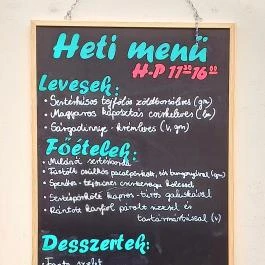 Heti menü
H-P 11³⁰ 16⁰⁰
Levesek:
• Sertéshúsos tejfölös zöldborsóleves (gm)
• Magyaros káposztás csirkeleves (lm)
• Sárgadinnye - krémleves (v, gm)
Főételek:
• Milánói sertésborda
• Töltött csülkös pacalpörkölt, sós burgonyával (gm)
• Spenótos - tejszínes csirkeragu rizzsel
• Sertéspörkölt kapros - túrós galuskával
• Rántott karfiol párolt rizzsel és
tartármártással (v)
Desszertek: